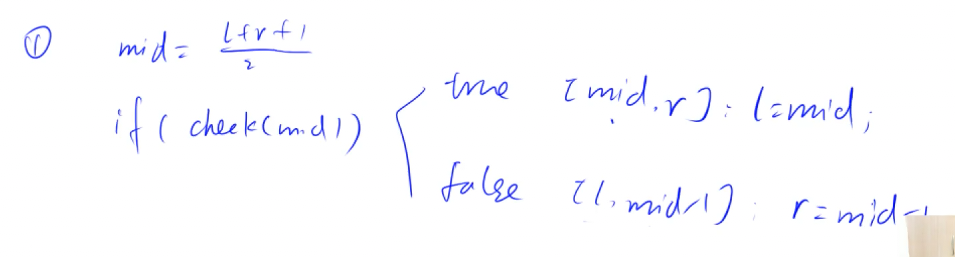 ① mid = (l+r+1)/2
if ( check(mid) )
true [mid, r] : l=mid;
false [l, mid-1] : r=mid-1